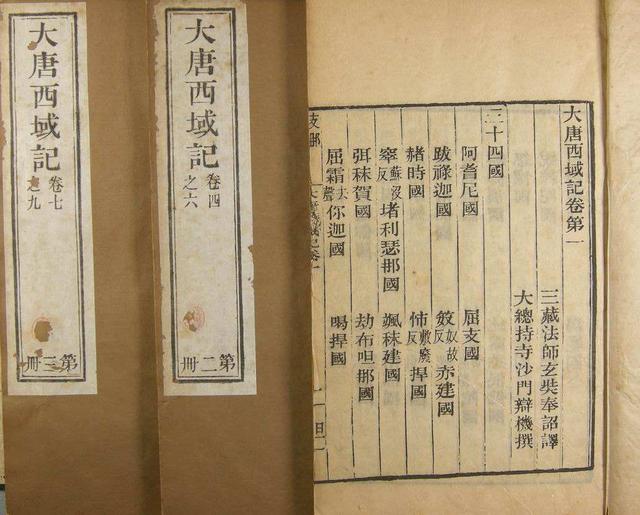 大唐西域記卷第一
三藏法師玄奘奉詔譯
大總持寺沙門辯機撰
三十四國
阿耆尼國 屈支國
跋祿迦國 笯奴故反赤建國
赭時國 㤄敷廢反捍國
窣蘇沒反堵利瑟那國 颯秣建國
弭秣賀國 劫布呾那國
屈霜去聲你迦國 喝捍國
大唐西域記
卷四
之六
第二冊
大唐西域記
卷七
之九
第三冊